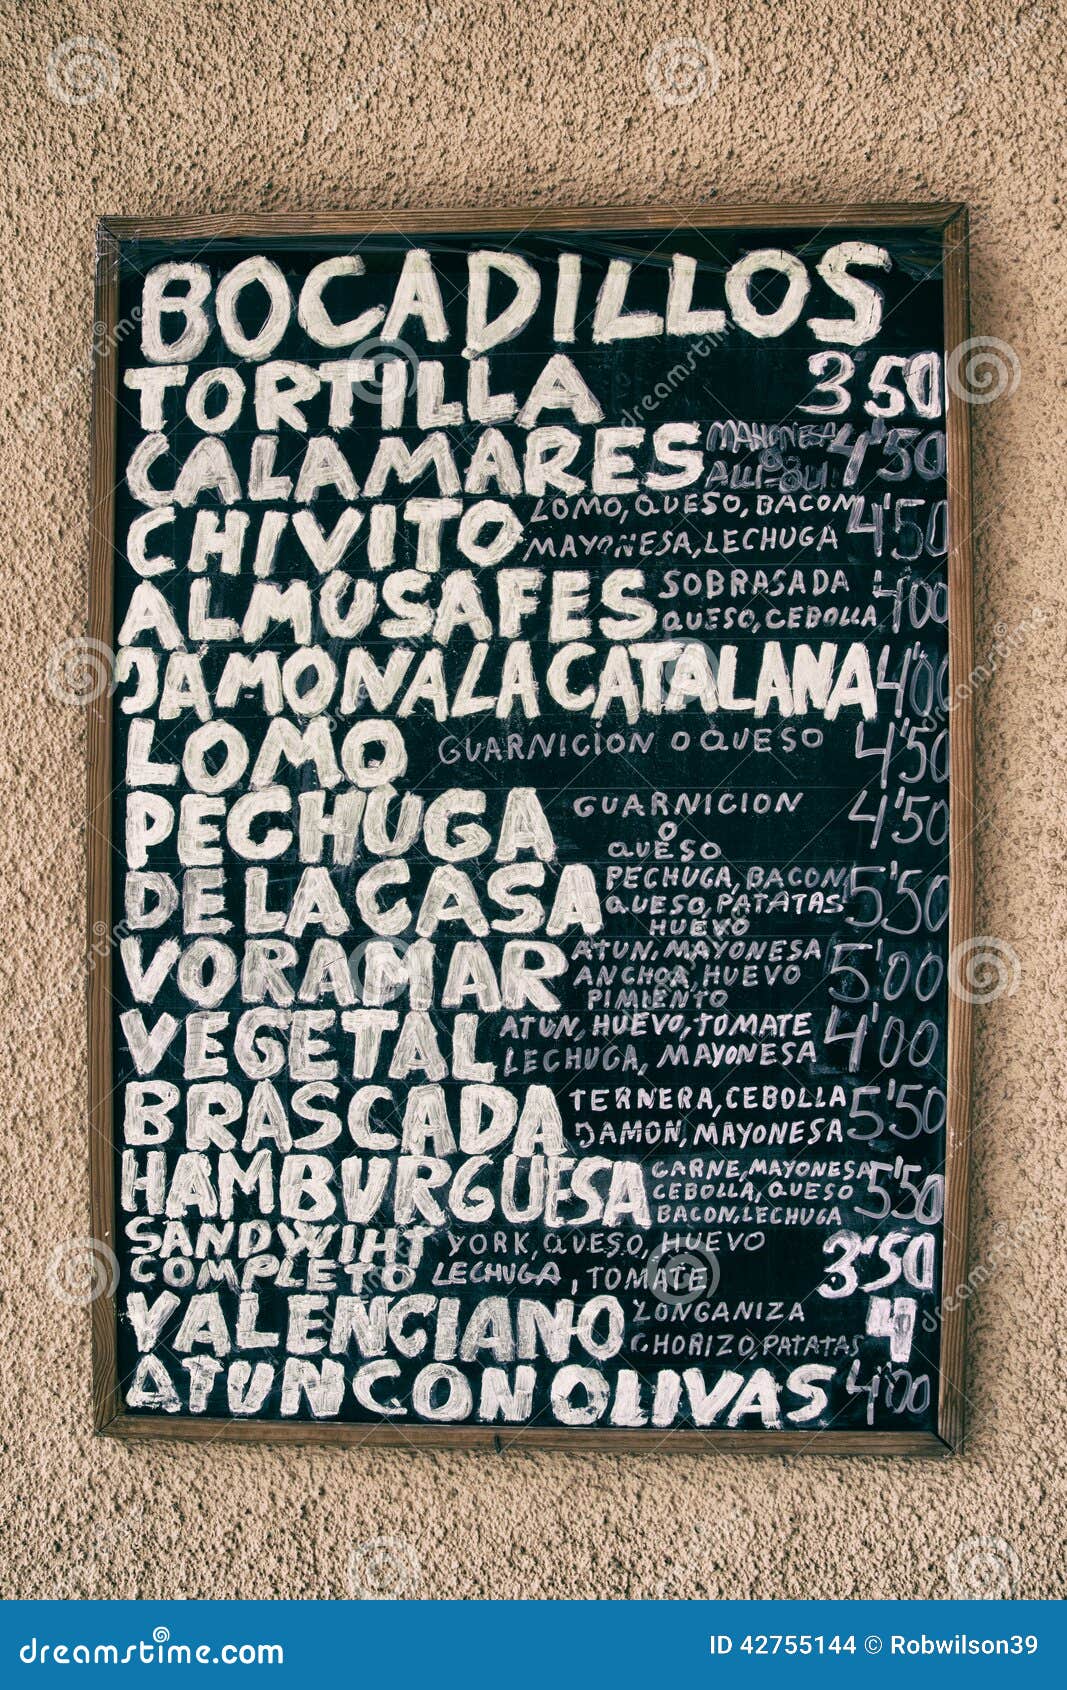 BOCADILLOS
TORTILLA 3'50
CALAMARES MAHONESA 4'50
O
ALLI-OLI
CHIVITO LOMO, QUESO, BACON 4'50
MAYONESA, LECHUGA
ALMUSAFES SOBRASADA 4'00
QUESO, CEBOLLA
JAMON A LA CATALANA 4'00
LOMO GUARNICION O QUESO 4'50
PECHUGA GUARNICION 4'50
O
QUESO
DE LA CASA PECHUGA, BACON, 5'50
QUESO, PATATAS
HUEVO
VORAMAR ATUN, MAYONESA 5'00
ANCHOA, HUEVO
PIMIENTO
VEGETAL ATUN, HUEVO, TOMATE 4'00
LECHUGA, MAYONESA
BRASCADA TERNERA, CEBOLLA 5'50
JAMON, MAYONESA
HAMBURGUESA CARNE, MAYONESA 5'50
CEBOLLA, QUESO
BACON, LECHUGA
SANDWIHT YORK, QUESO, HUEVO 3'50
COMPLETO LECHUGA, TOMATE
VALENCIANO LONGANIZA 4
CHORIZO, PATATAS
ATUN CON OLIVAS 4'00
dreamstime.com ID 42755144 © Robwilson39